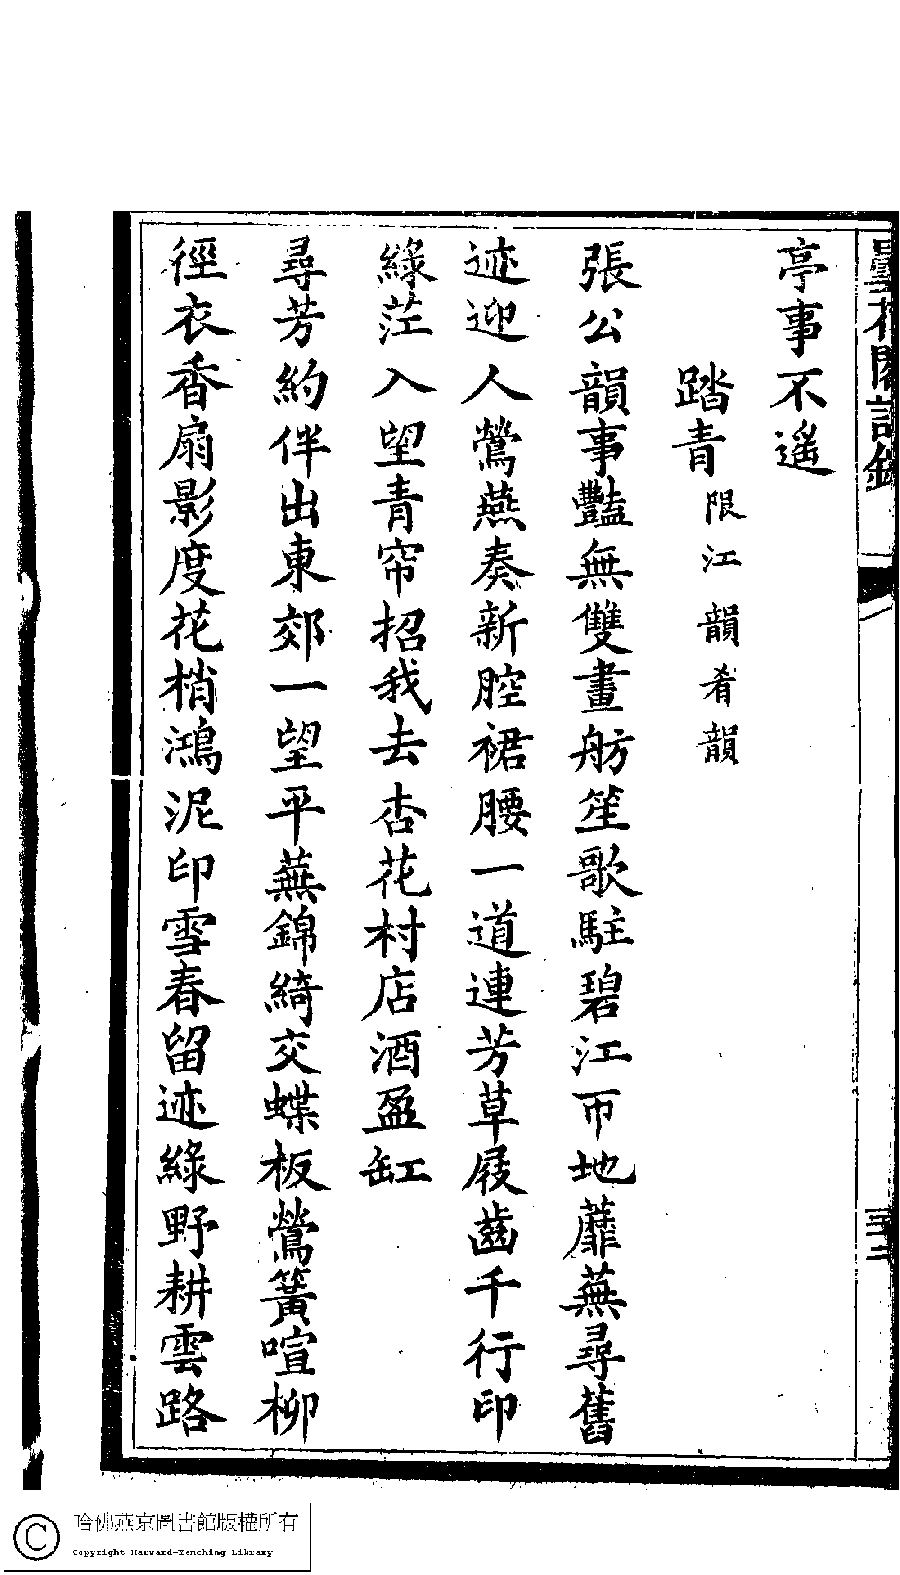 曇花閣詩鈔
三二
亭事不遙
踏青限江韻肴韻
張公韻事豔無雙畫舫笙歌駐碧江帀地蘼蕪尋舊
迹迎人鶯燕奏新腔裙腰一道連芳草屐齒千行印
綠茳入望青帘招我去杏花村店酒盈缸
尋芳約伴出東郊一望平蕪錦綺交蝶板鶯簧喧柳
徑衣香扇影度花梢鴻泥印雪春留迹綠野耕雲路
哈佛燕京圖書館版權所有
Copyright Harvard-Yenching Library